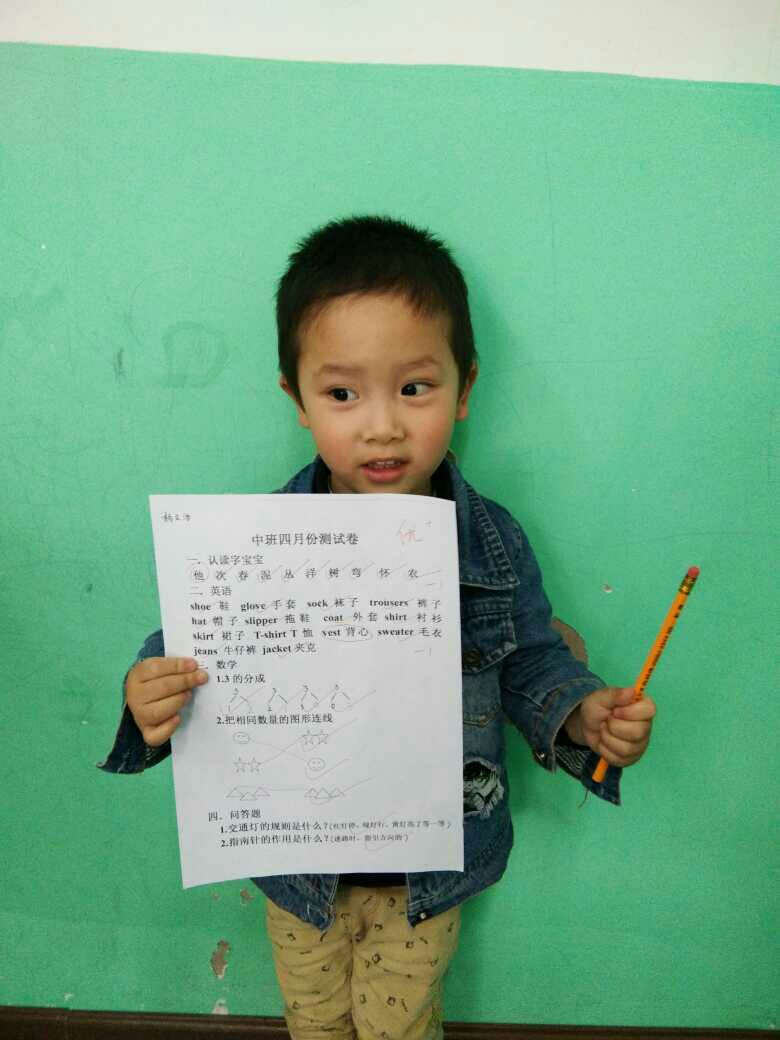 优+
中班四月份测试卷
一．认读字宝宝
他 次 春 泥 丛 洋 树 弯 怀 衣
二．英语
shoe 鞋 glove 手套 sock 袜子 trousers 裤子
hat 帽子 slipper 拖鞋 coat 外套 shirt 衬衫
skirt 裙子 T-shirt T恤 vest 背心 sweater 毛衣
jeans 牛仔裤 jacket 夹克
三．数学
1.3 的分成
3 3 3 3
1 2 3 0
2.把相同数量的图形连线
四．问答题
1.交通灯的规则是什么？(红灯停，绿灯行，黄灯亮了等一等)
2.指南针的作用是什么？(迷路时，指引方向的)